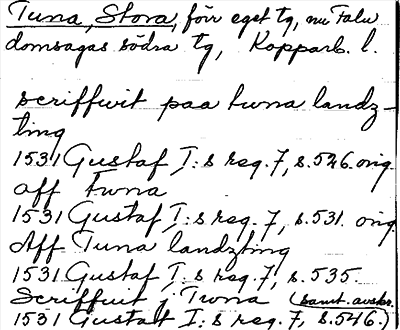 Tuna, Stora, förr eget tg, nu Falu
domsagas södra tg, Kopparb. l.
scriffwit paa twna landz-
ting
1531 Gustaf I:s reg. 7, s. 526. orig.
aff Twna
1531 Gustaf I:s reg. 7, s. 531. orig
Aff Tuna landzting
1531 Gustaf I:s reg. 7, s. 535.
Scriffuit j Twna (samt. avskr.
1531 Gustaf I:s reg. 7, s. 546.)